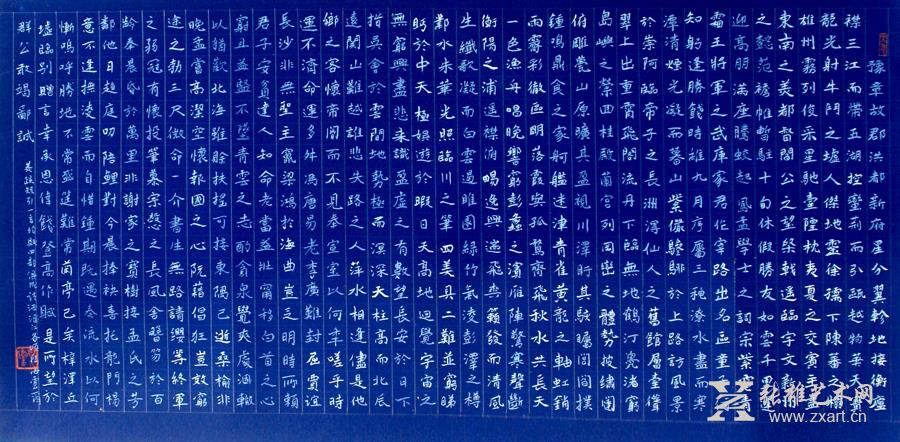 豫章故郡洪都新府星分翼軫地接衡廬
襟三江而帶五湖控蠻荊而引甌越物華天寶
龍光射牛斗之墟人傑地靈徐孺下陳蕃之榻
雄州霧列俊采星馳臺隍枕夷夏之交賓主盡
東南之美都督閻公之雅望棨戟遙臨宇文新州
之懿範襜帷暫駐十旬休假勝友如雲千里逢
迎高朋滿座騰蛟起鳳孟學士之詞宗紫電青
霜王將軍之武庫家君作宰路出名區童子何
知躬逢勝餞時維九月序屬三秋潦水盡而寒
潭清煙光凝而暮山紫儼驂騑於上路訪風景
於崇阿臨帝子之長洲得仙人之舊館層臺聳
翠上出重霄飛閣流丹下臨無地鶴汀鳧渚窮
島嶼之縈回桂殿蘭宮列岡巒之體勢披繡闥
俯雕甍山原曠其盈視川澤盱其駭矚閭閻撲地
鐘鳴鼎食之家舸艦迷津青雀黃龍之軸虹銷
雨霽彩徹區明落霞與孤鶩齊飛秋水共長天
一色漁舟唱晚響窮彭蠡之濱雁陣驚寒聲斷
衡陽之浦遙襟俯暢逸興遄飛爽籟發而清風
生纖歌凝而白雲遏睢園綠竹氣凌彭澤之樽
鄴水朱華光照臨川之筆四美具二難並窮睇
眄於中天極娛遊於暇日天高地迥覺宇宙之
無窮興盡悲來識盈虛之有數望長安於日下
指吳會於雲間地勢極而南溟深天柱高而北辰
遠關山難越誰悲失路之人萍水相逢盡是他
鄉之客懷帝閽而不見奉宣室以何年嗟乎時
運不濟命運多舛馮唐易老李廣難封屈賈誼於
長沙非無聖主竄梁鴻於海曲豈乏明時所賴
君子安貧達人知命老當益壯寧移白首之心
窮且益堅不墜青雲之志酌貪泉而覺爽處涸轍
以猶歡北海雖賒扶搖可接東隅已逝桑榆非
晚孟嘗高潔空懷報國之心阮籍倡狂豈效窮
途之哭勃三尺微命一介書生無路請纓等終軍
之弱冠有懷投筆慕宗愨之長風舍簪笏於百
齡奉晨昏於萬里非謝家之寶樹接孟氏之芳
鄰他日趨庭叨陪鯉對今晨捧袂喜托龍門楊
意不逢撫凌雲而自惜鍾期既遇奏流水以何
慚嗚呼勝地不常盛筵難再蘭亭已矣梓澤丘
墟臨別贈言幸承恩偉餞登高作賦是所望於
群公敢竭鄙誠
www.zxart.cn